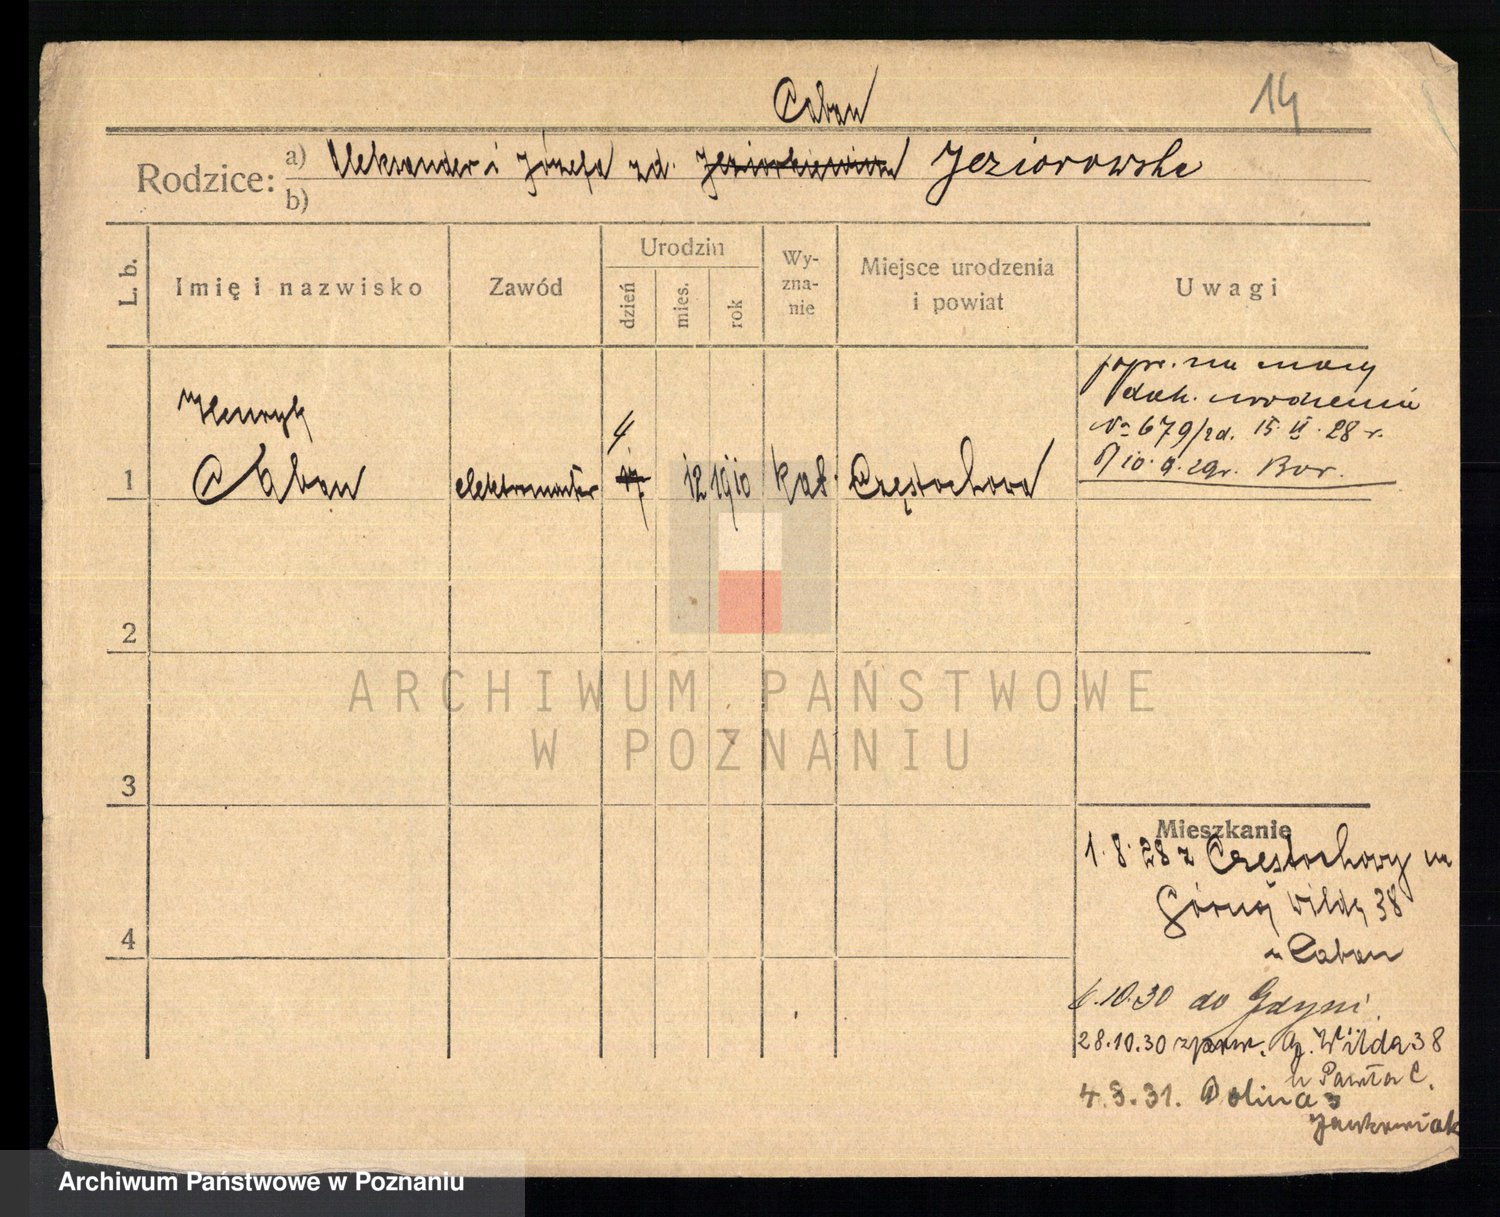 14
Caban
Rodzice:
a) Aleksander i Józefa zd. Jeziorkiewicz Jeziorowska
b)
L. b.
Imię i nazwisko
Zawód
Urodzin
dzień
mies.
rok
Wy-
zna-
nie
Miejsce urodzenia
i powiat
Uwagi
Henryk
1 Caban elektromonter 4 12 1910 kat. Częstochowa
popr. na mocy
dok. urodzenia
No 679/zd. 15 28 r.
10.9.29r. Bor.
2
3
4
Mieszkanie
1.8.28 z Częstochowy na
Górnej Wildy 38
u Caban
10.30 do Gdyni.
28.10.30 zpow. G. Wilda 38
u Pawła C.
4.3.31. Dolina 3
Jankowiak
ARCHIWUM PAŃSTWOWE
W POZNANIU
Archiwum Państwowe w Poznaniu